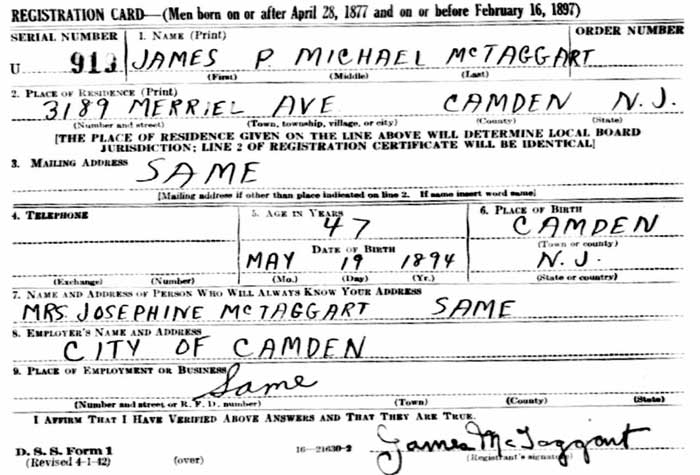 REGISTRATION CARD—(Men born on or after April 28, 1877 and on or before February 16, 1897)
SERIAL NUMBER
1. NAME (Print)
ORDER NUMBER
U 913
JAMES P. MICHAEL MCTAGGART
(First) (Middle) (Last)
2. PLACE OF RESIDENCE (Print)
3189 MERRIEL AVE CAMDEN N.J.
(Number and street) (Town, township, village, or city) (County) (State)
[THE PLACE OF RESIDENCE GIVEN ON THE LINE ABOVE WILL DETERMINE LOCAL BOARD
JURISDICTION; LINE 2 OF REGISTRATION CERTIFICATE WILL BE IDENTICAL]
3. MAILING ADDRESS
SAME
[Mailing address if other than place indicated on line 2. If same insert word same]
4. TELEPHONE
5. AGE IN YEARS
6. PLACE OF BIRTH
47
CAMDEN
(Town or county)
DATE OF BIRTH
MAY 19 1894
N.J.
(Exchange) (Number)
(Mo.) (Day) (Yr.)
(State or country)
7. NAME AND ADDRESS OF PERSON WHO WILL ALWAYS KNOW YOUR ADDRESS
MRS. JOSEPHINE MCTAGGART SAME
8. EMPLOYER'S NAME AND ADDRESS
CITY OF CAMDEN
9. PLACE OF EMPLOYMENT OR BUSINESS
Same
(Number and street or R. F. D. number) (Town) (County) (State)
I AFFIRM THAT I HAVE VERIFIED ABOVE ANSWERS AND THAT THEY ARE TRUE.
D. S. S. Form 1
(Revised 4-1-42) (over)
16—21630-2
James McTaggart
(Registrant's signature)